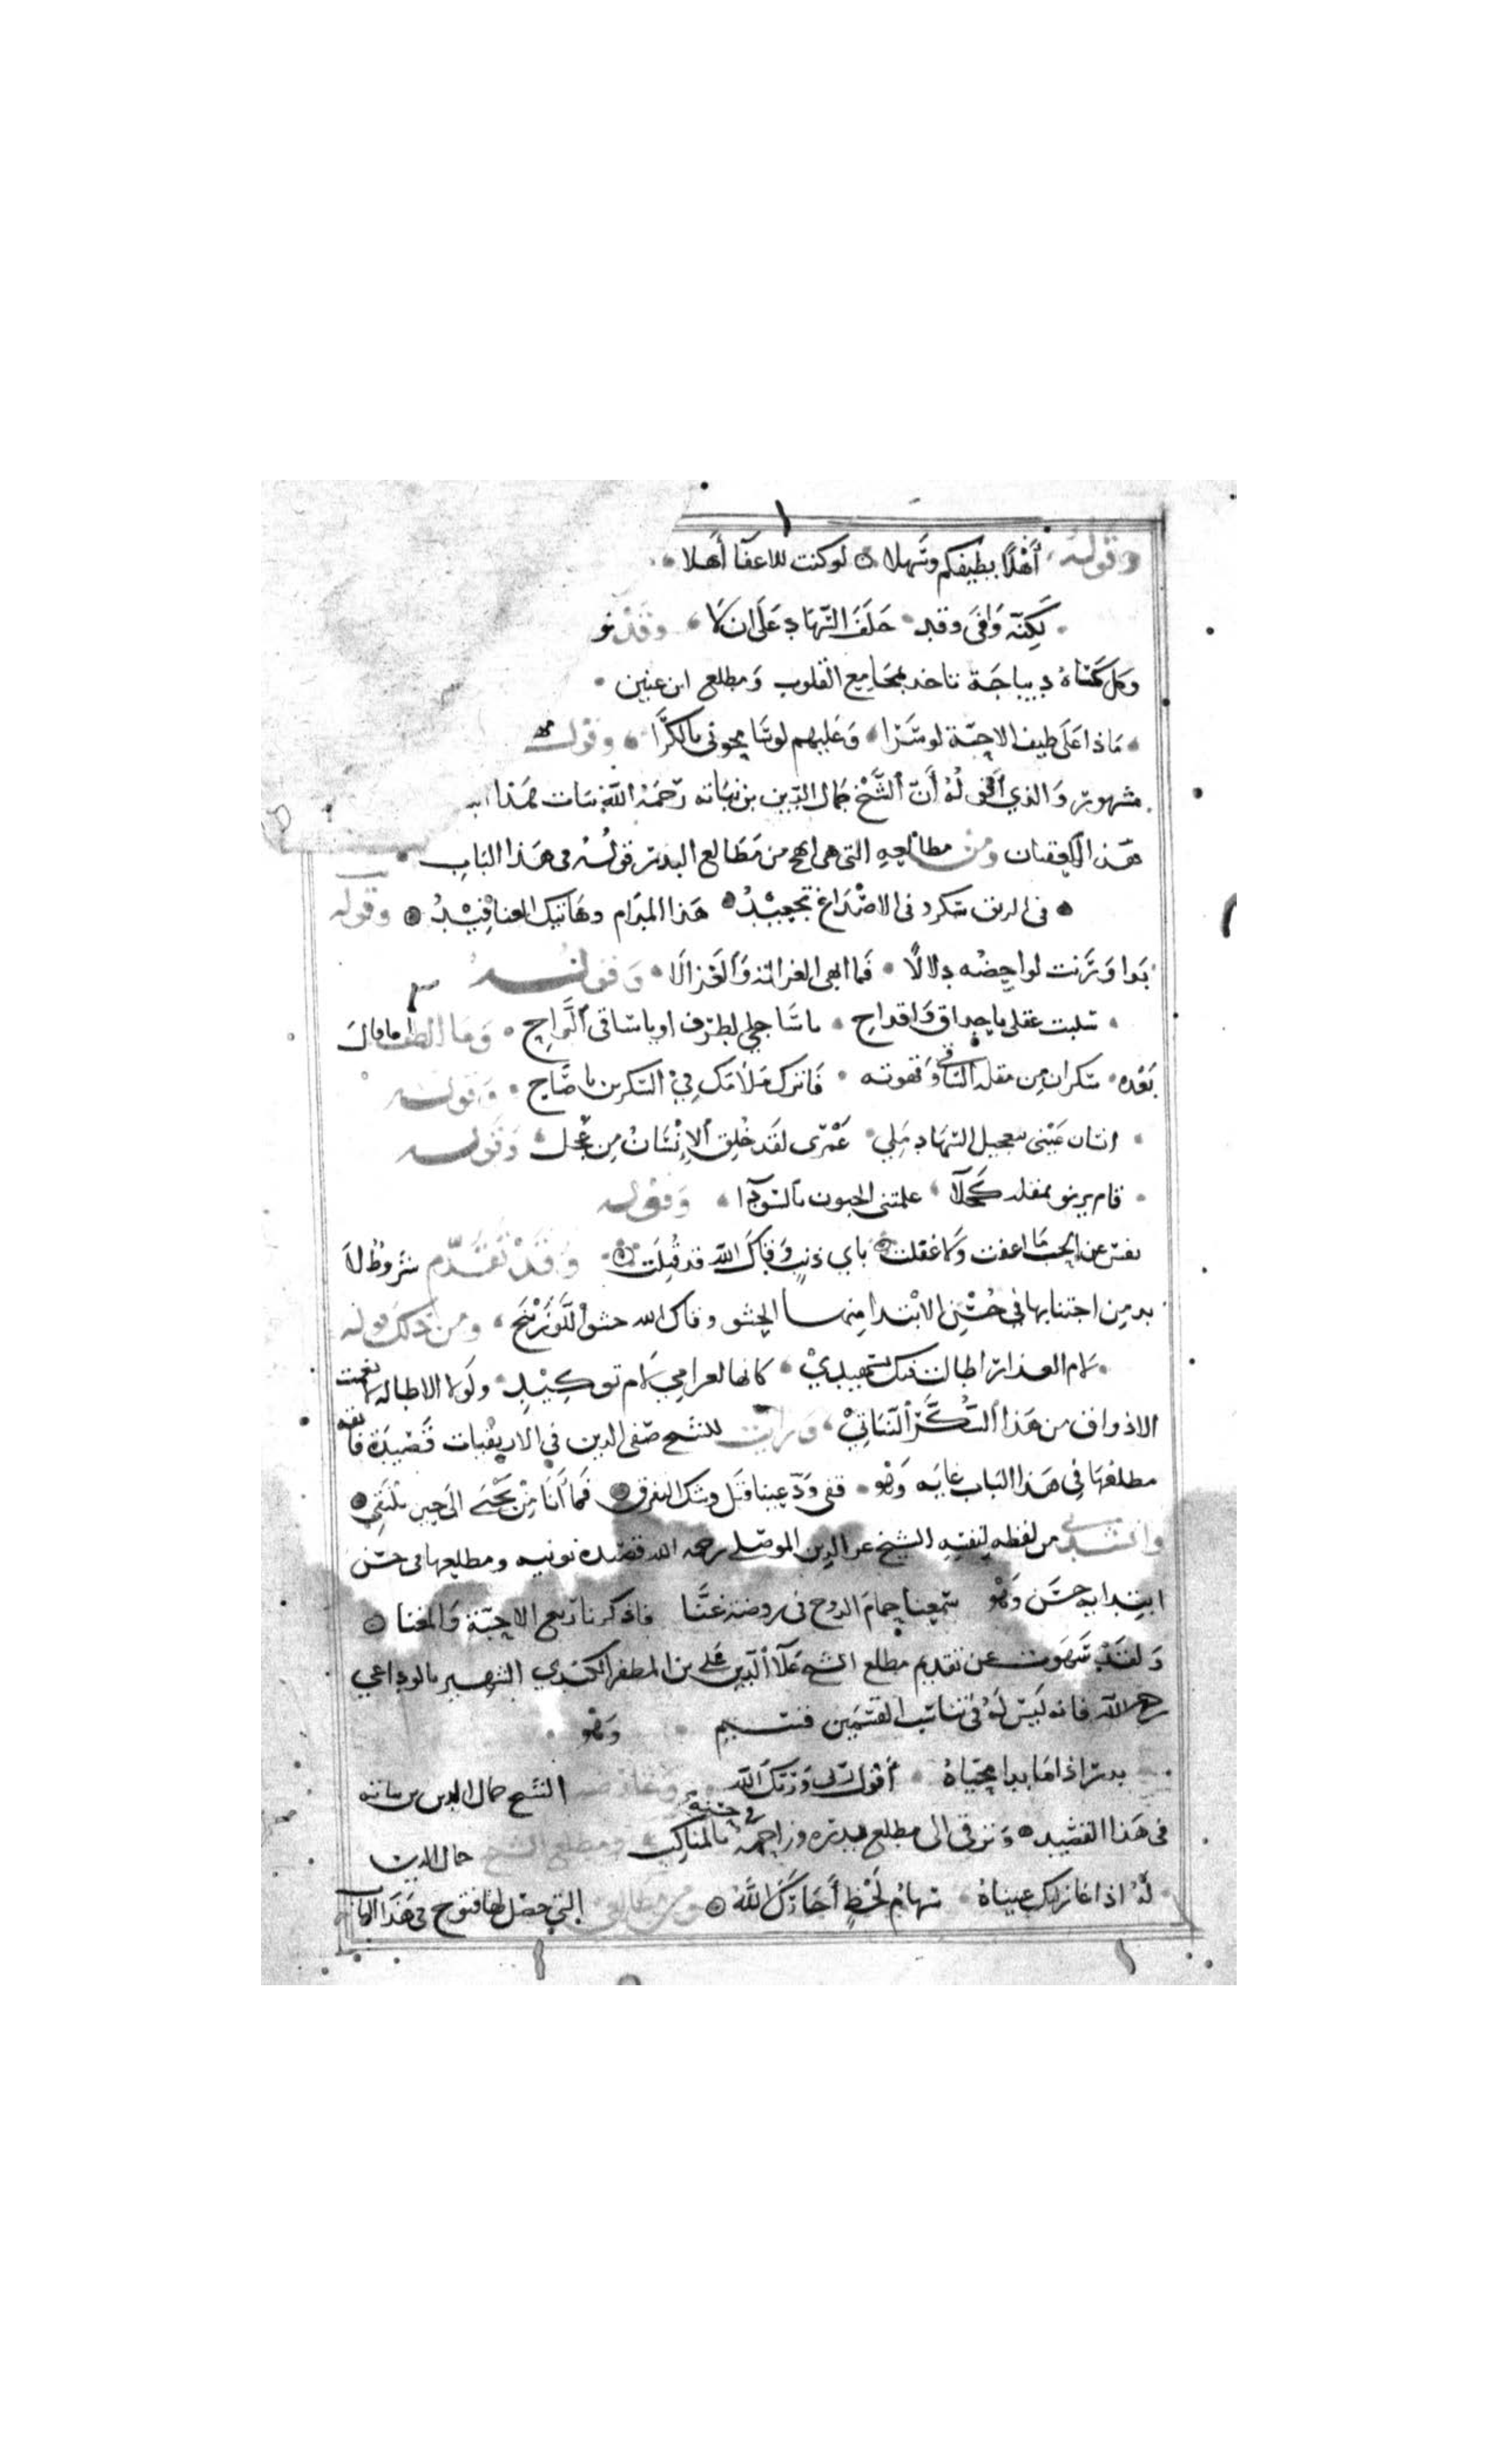 وقوله أهلا بطيفكم وسهلا لو كنت للاغفا أهلا
لكنه وافى وقد حلف السهاد على ان لا وقد نو
ديباجة تاخذ بمجامع القلوب ومطلع ابن عنين
ماذا على طيف الاحبة لو سرا وعليهم لو سامحوني بالكرا وقوله
والذي اقوله أن الشيخ جمال الدين بن نباته رحمه الله نبات هذا
ومن مطالعه التي هي ابهج من مطالع البدر قوله في هذا الباب
في الريق سكر وفي الاصداغ تجعيد هذا المدام وهاتيك العناقيد وقوله
بدا ورنت لواحظه دلالا فما ابهى الغزالة والغزالا وقوله
سلبت عقلي باحداق واقداح يا ساجي الطرف او يا ساقي الراح وما الطف ما قال
بعده سكران من مقلة الساقي وقهوته فاترك ملامك في السكرين يا صاح وقوله
انسان عيني بتعجيل السهاد بلي عمري لقد خلق الإنسان من عجل وقوله
قام يرنو بمقلة كحلا علمتني الجنون بالسودا وقوله
نفس عن الحب ما اغفت وما غفلت باي ذنب وقاك الله قد قتلت وقد تقدم شروط لا
بد من اجتنابها في حسن الابتدا منها الحشو وقاك الله حشو اللوزينج ومن ذلك قوله
لام العذار اطالت فيك تسهيدي كانها لغرامي لام توكيد ولولا الاطالة لانعمت
الاذواق من هذا السكر النباتي ورايت للشيخ صفي الدين في الارتقيات قصيدة قافية
مطلعها في هذا الباب غايه وهو قفي ودعينا قبل وشك التفرق فما أنا من يحيى الى حين نلتقي
وانشدني من لفظه لنفسه الشيخ عز الدين الموصلي رحمه الله قصيدة نونيه ومطلعها في حسن
ابتدايه حسن وهو سمعنا حمام الدوح في روضة غنا فاذكرنا ربع الاحبة والمغنا
ولقد سهوت عن تقديم مطلع الشيخ علا الدين علي بن المظفر الكندي الشهير بالوداعي
رحمه الله فانه ليس له في تناسب القسمين قسيم وهو
بدر اذا ما بدا محياه أقول ربي وربك الله وعارضه الشيخ جمال الدين بن نباته
في هذا القصيد وترقى الى مطلع بدره وزاحمه في حسنه بالمناكب ومطلع الشيخ جمال الدين
له اذا غازلتك عيناه سهام لحظ أجارك الله ومن مطالعي التي حصل لها فتوح في هذا الباب